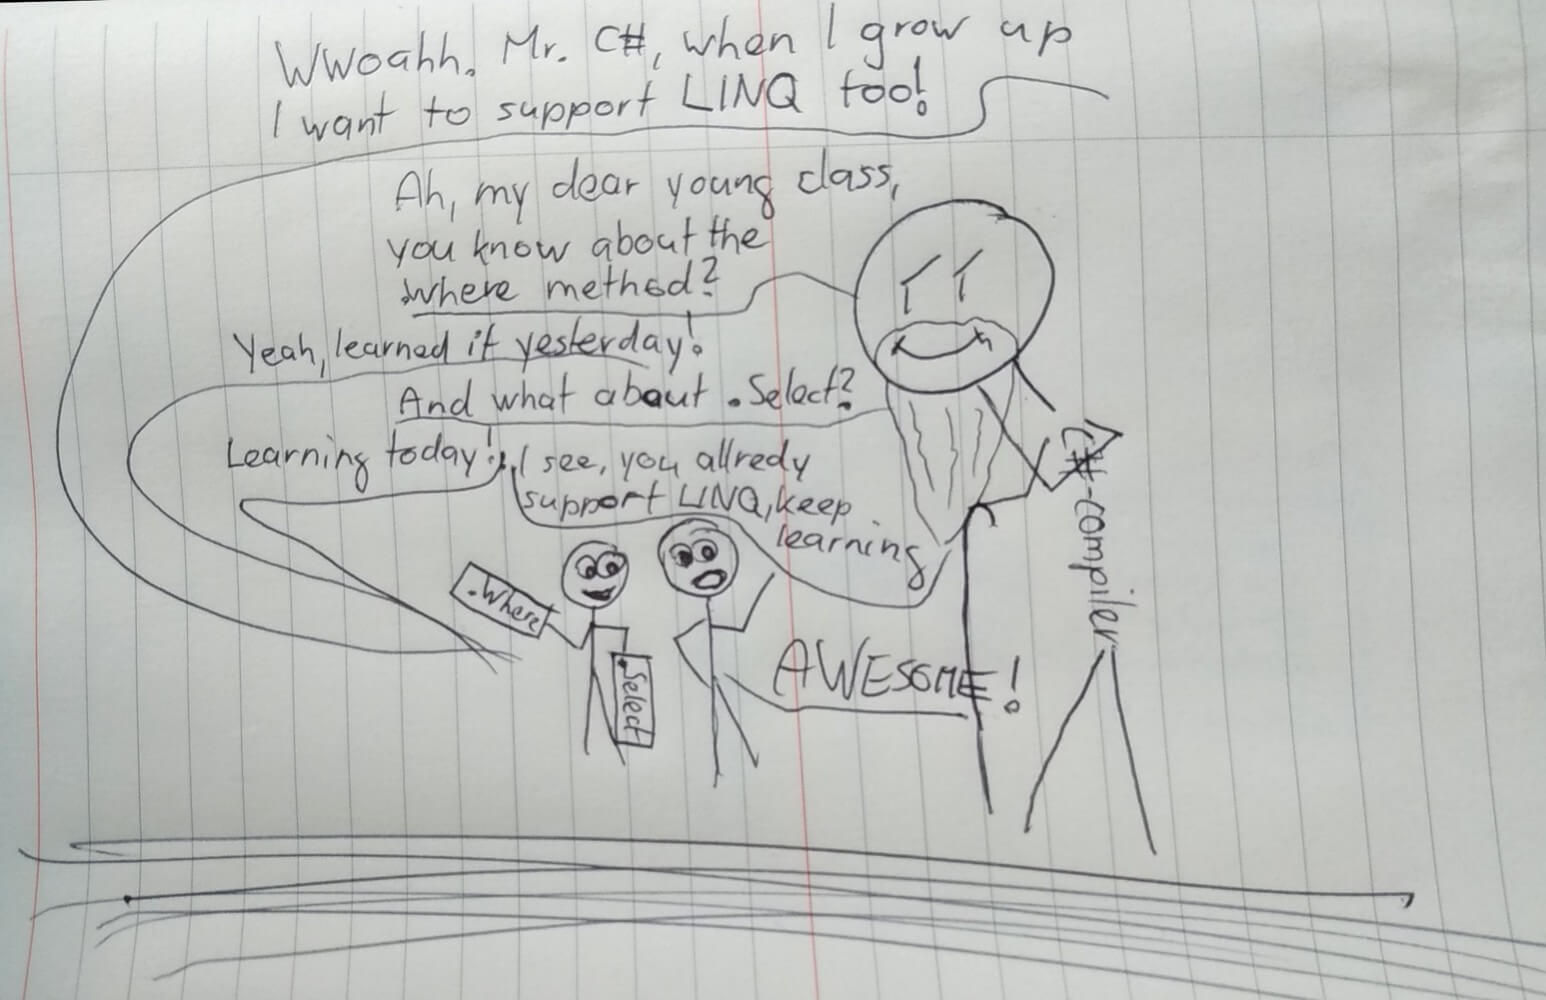 Wwoahh. Mr. C#, when I grow up
I want to support LINQ too!
Ah, my dear young class,
you know about the
.where method?
Yeah, learned it yesterday!
And what about .Select?
Learning today!
I see, you allredy
support LINQ, keep
learning
.Where
.Select
AWESOME!
C#-compiler